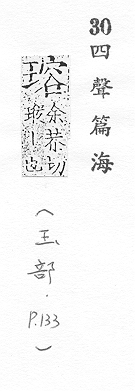 30 四聲篇海
瑢 余恭切
瑽丨也
(玉部.P.133)